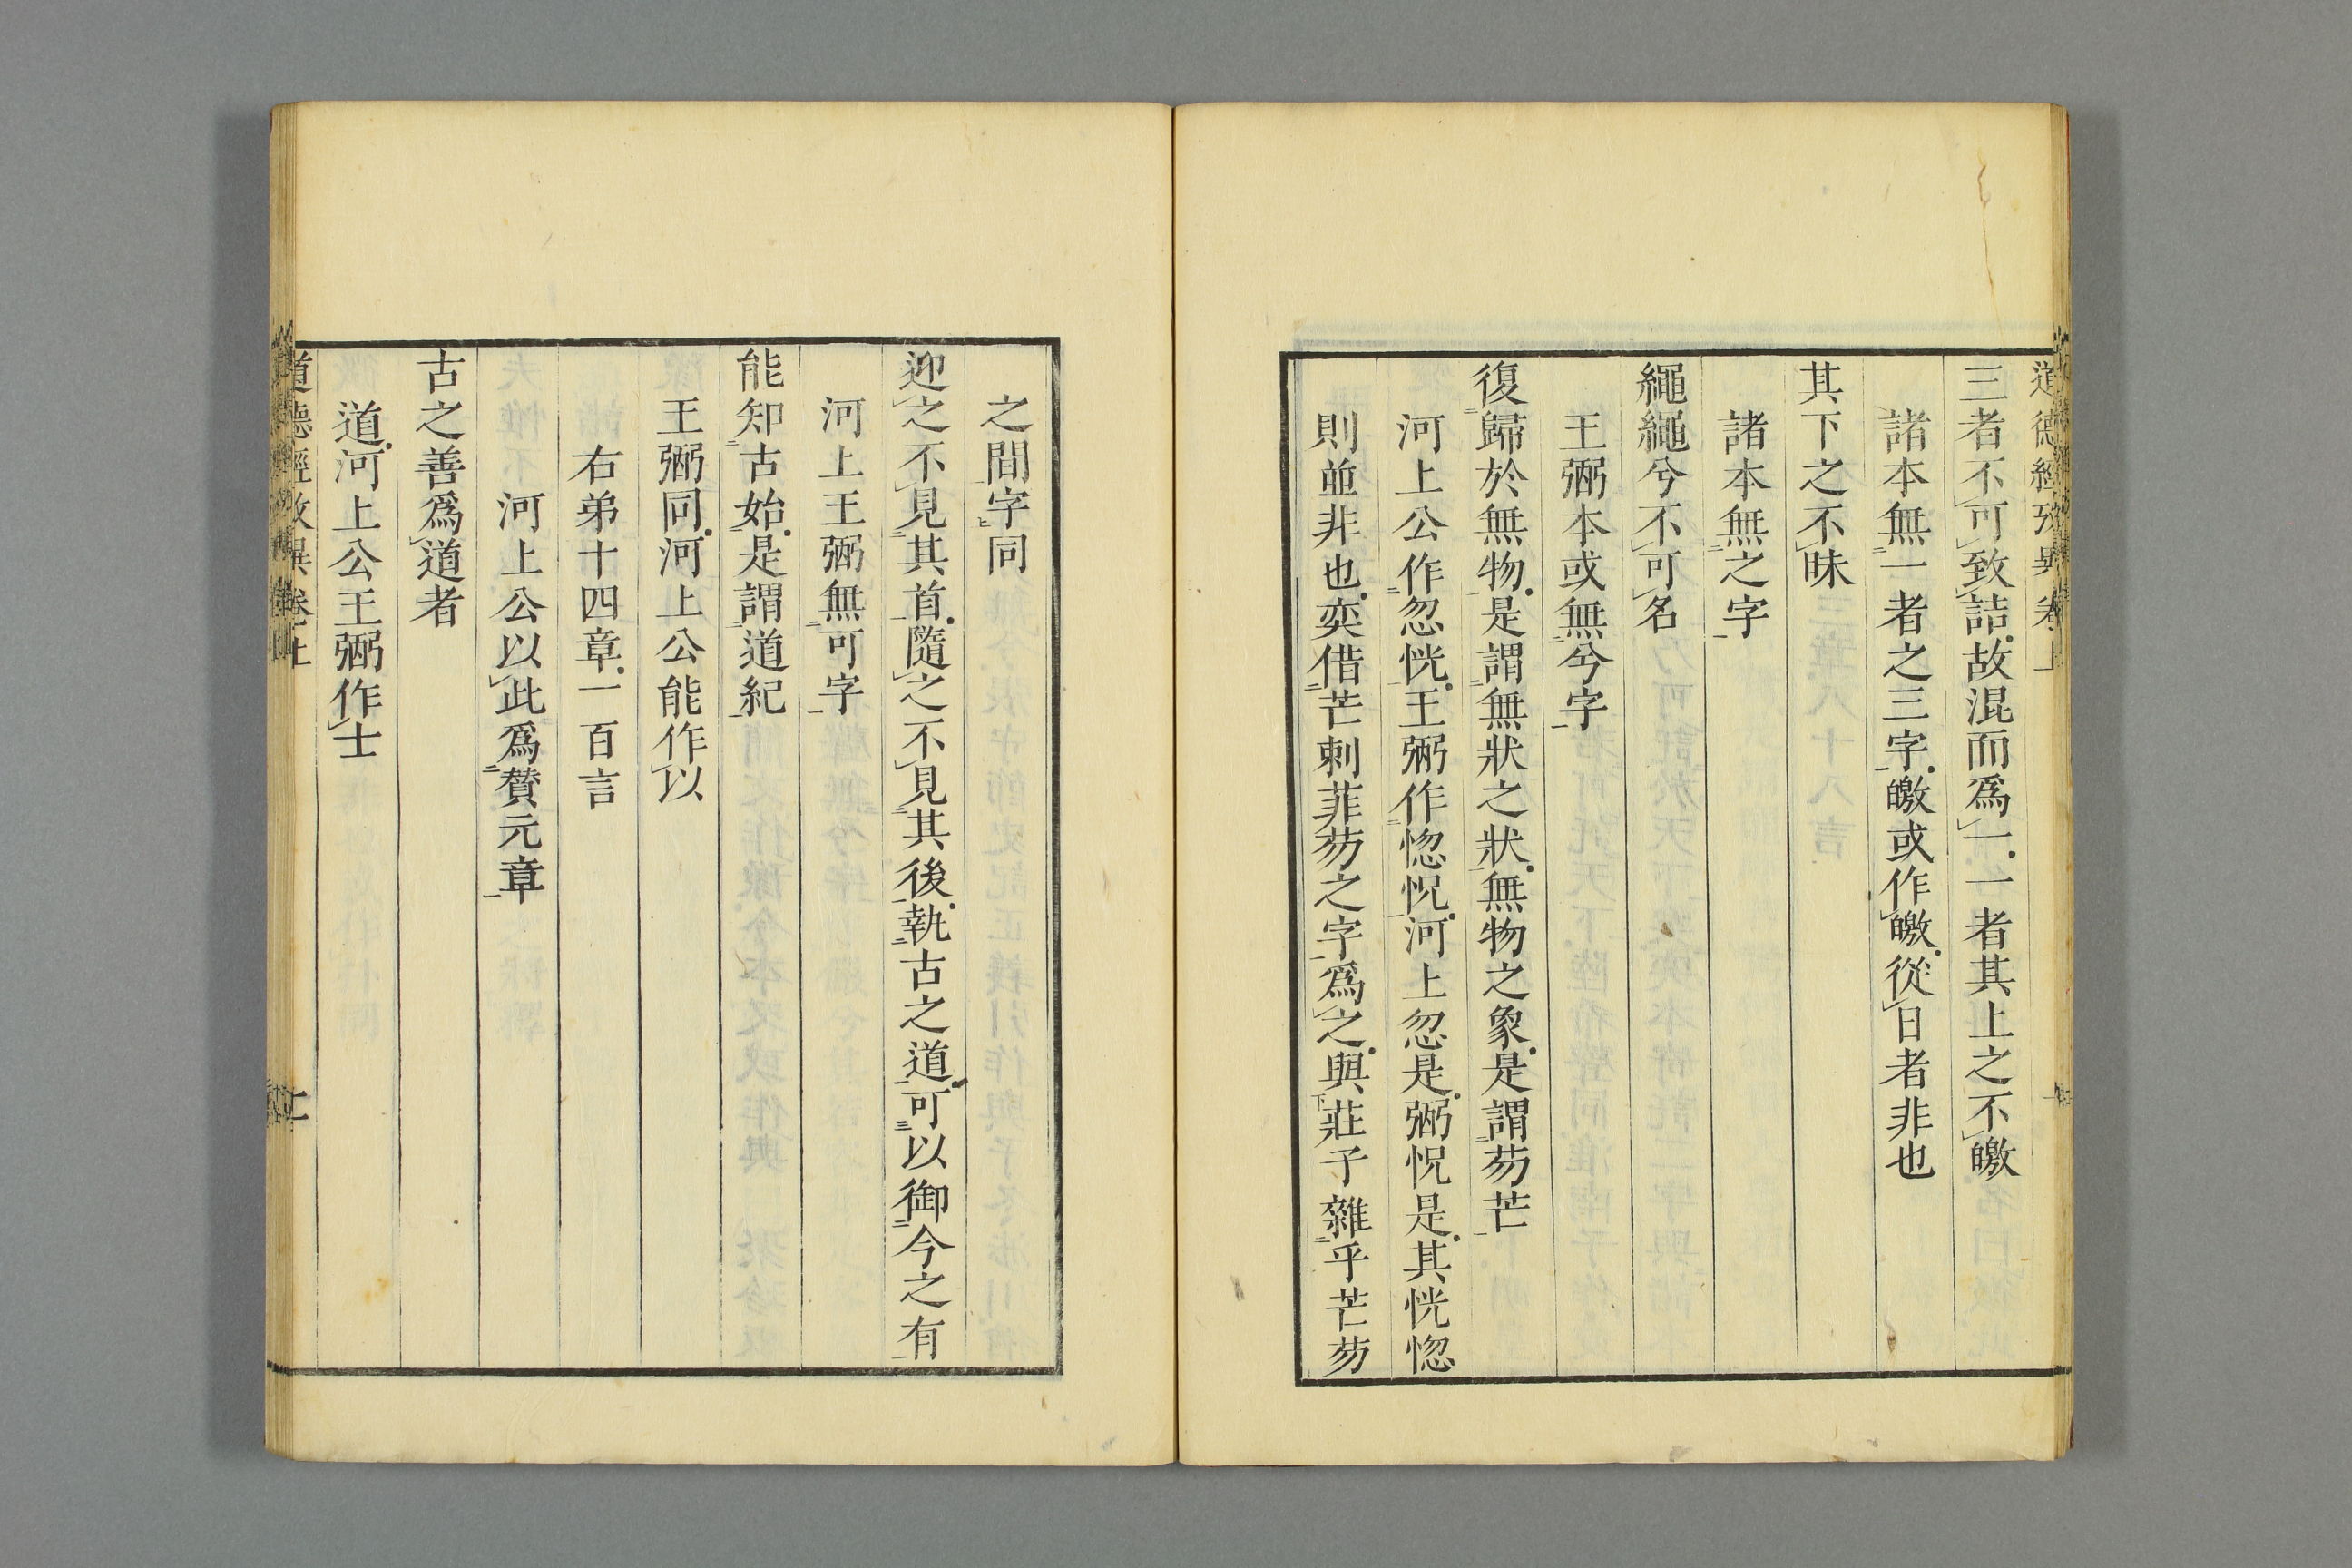 道德經攷異卷上
三者不可致詰故混而爲一一者其上之不皦
諸本無一者之三字皦或作曒從日者非也
其下之不昧
諸本無之字
繩繩兮不可名
王弼本或無兮字
復歸於無物是謂無狀之狀無物之象是謂芴芒
河上公作忽恍王弼作惚怳河上忽是弼怳是其恍惚
則並非也奕借芒刺菲芴之字爲之與莊子雜乎芒芴
之間字同
迎之不見其首隨之不見其後執古之道可以御今之有
河上王弼無可字
能知古始是謂道紀
王弼同河上公能作以
右弟十四章一百言
河上公以此爲贊元章
古之善爲道者
道河上公王弼作士
道德經攷異卷上